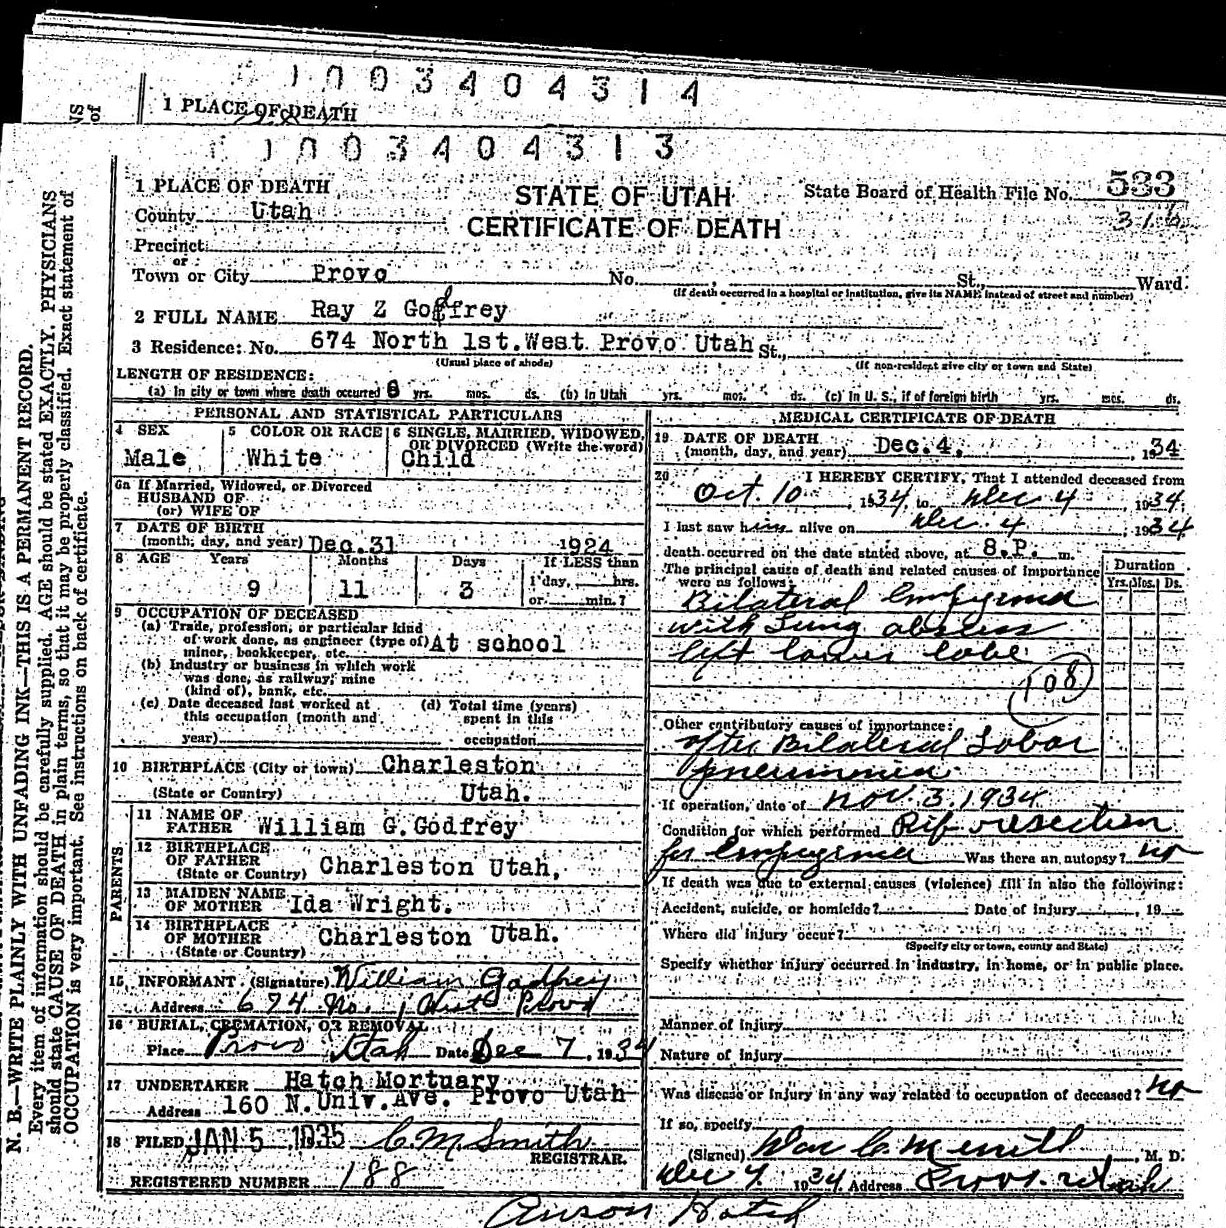 1003404314
1 PLACE OF DEATH
NS
of
1003404313
1 PLACE OF DEATH
STATE OF UTAH
CERTIFICATE OF DEATH
State Board of Health File No. 533
316
County Utah
Precinct
or
Town or City Provo No. , St., Ward
(If death occurred in a hospital or institution, give its NAME instead of street and number)
2 FULL NAME Ray Z Godfrey
3 Residence: No. 674 North 1st. West Provo Utah St.,
(Usual place of abode) (If non-resident give city or town and State)
LENGTH OF RESIDENCE:
(a) In city or town where death occurred 8 yrs. mos. ds. (b) In Utah yrs. mos. ds. (c) In U. S., if of foreign birth yrs. mos. ds.
PERSONAL AND STATISTICAL PARTICULARS
4 SEX
Male
5 COLOR OR RACE
White
6 SINGLE, MARRIED, WIDOWED,
OR DIVORCED (Write the word)
Child
6a If Married, Widowed, or Divorced
HUSBAND OF
(or) WIFE OF
7 DATE OF BIRTH
(month, day, and year) Dec. 31 1924
8 AGE Years Months Days If LESS than
9 11 3 1 day, hrs.
or min.?
9 OCCUPATION OF DECEASED
(a) Trade, profession, or particular kind
of work done, as engineer (type of) At school
miner, bookkeeper, etc.
(b) Industry or business in which work
was done, as railway, mine
(kind of), bank, etc.
(c) Date deceased last worked at
this occupation (month and
year)
(d) Total time (years)
spent in this
occupation
10 BIRTHPLACE (City or town) Charleston
(State or Country) Utah.
PARENTS
11 NAME OF
FATHER William G. Godfrey
12 BIRTHPLACE
OF FATHER Charleston Utah.
(State or Country)
13 MAIDEN NAME
OF MOTHER Ida Wright.
14 BIRTHPLACE
OF MOTHER Charleston Utah.
(State or Country)
15 INFORMANT (Signature) William Godfrey
Address 674 No. 1 West Provo
16 BURIAL, CREMATION, OR REMOVAL
Place Provo Utah Date Dec 7, 1934
17 UNDERTAKER Hatch Mortuary
Address 160 N. Univ. Ave. Provo Utah
18 FILED JAN 5 1935 C M Smith
REGISTRAR.
REGISTERED NUMBER 188
MEDICAL CERTIFICATE OF DEATH
19 DATE OF DEATH
(month, day, and year) Dec. 4. , 1934
20 I HEREBY CERTIFY, That I attended deceased from
Oct. 10 , 1934, to Dec 4 , 1934.
I last saw him alive on Dec. 4 , 1934
death occurred on the date stated above, at 8. P. m.
The principal cause of death and related causes of importance
were as follows:
Duration
Yrs. Mos. Ds.
Bilateral Empyema
with Lung abscess
left lower lobe
108
Other contributory causes of importance:
after Bilateral Lobar
pneumonia
If operation, date of Nov 3. 1934
Condition for which performed Rib resection
for Empyema Was there an autopsy? no
If death was due to external causes (violence) fill in also the following:
Accident, suicide, or homicide? Date of injury , 19
Where did injury occur?
(Specify city or town, county and State)
Specify whether injury occurred in industry, in home, or in public place.
Manner of injury
Nature of injury
Was disease or injury in any way related to occupation of deceased? no
If so, specify
(Signed) Dan C. Merrill , M. D.
Dec 7, 1934 Address Provo. Utah
Anson Hatch
N. B.—WRITE PLAINLY WITH UNFADING INK—THIS IS A PERMANENT RECORD.
Every item of information should be carefully supplied. AGE should be stated EXACTLY. PHYSICIANS
should state CAUSE OF DEATH in plain terms, so that it may be properly classified. Exact statement of
OCCUPATION is very important. See instructions on back of certificate.